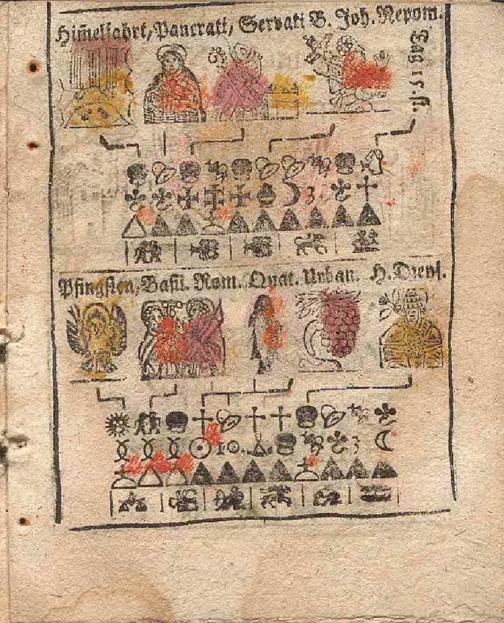 Him̃elfahrt, Pancrati, Servati B. Joh. Nepom.
Tag 15 st.
Pfingsten, Basil. Rom. Quat. Urban. H. Dreyf.